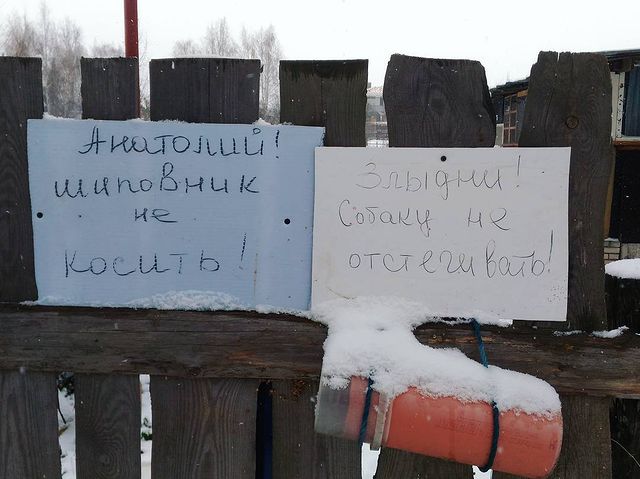 Анатолий!
шиповник
не
косить!
Злыдни!
Собаку не
отстегивать!